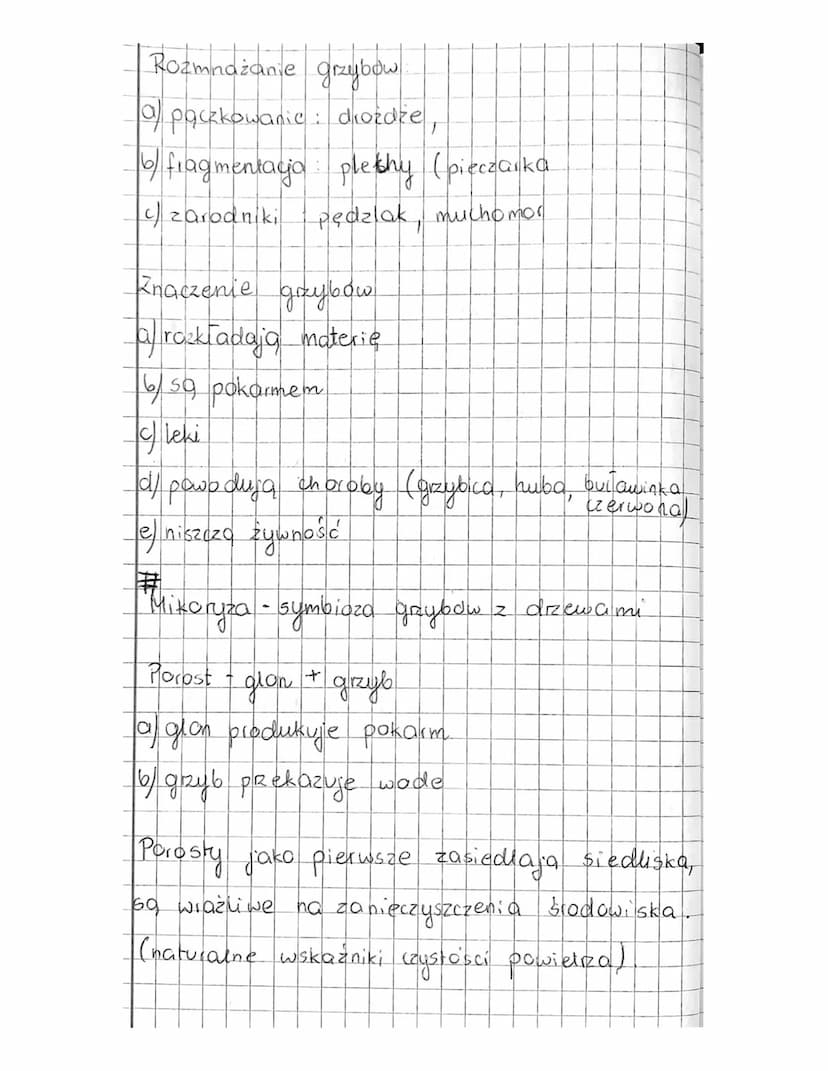 Rozmnażanie grzybów
a) pączkowanie : drożdże,
b) fragmentacja : plethy (pieczarka
c) zarodniki : pędzlak, muchomor
Znaczenie grzybów
a) rozkładają materię
b) są pokarmem
c) leki
d) powodują choroby (grzybica, huba, buławinka
czerwona)
e) niszczą żywność
# Mikoryza - symbioza grzybów z drzewami
Porost - glon + grzyb
a) glon produkuje pokarm
b) grzyb przekazuje wode
Porosty jako pierwsze zasiedlają siedliska,
są wrażliwe na zanieczyszczenia środowiska.
(naturalne wskaźniki czystości powietrza)